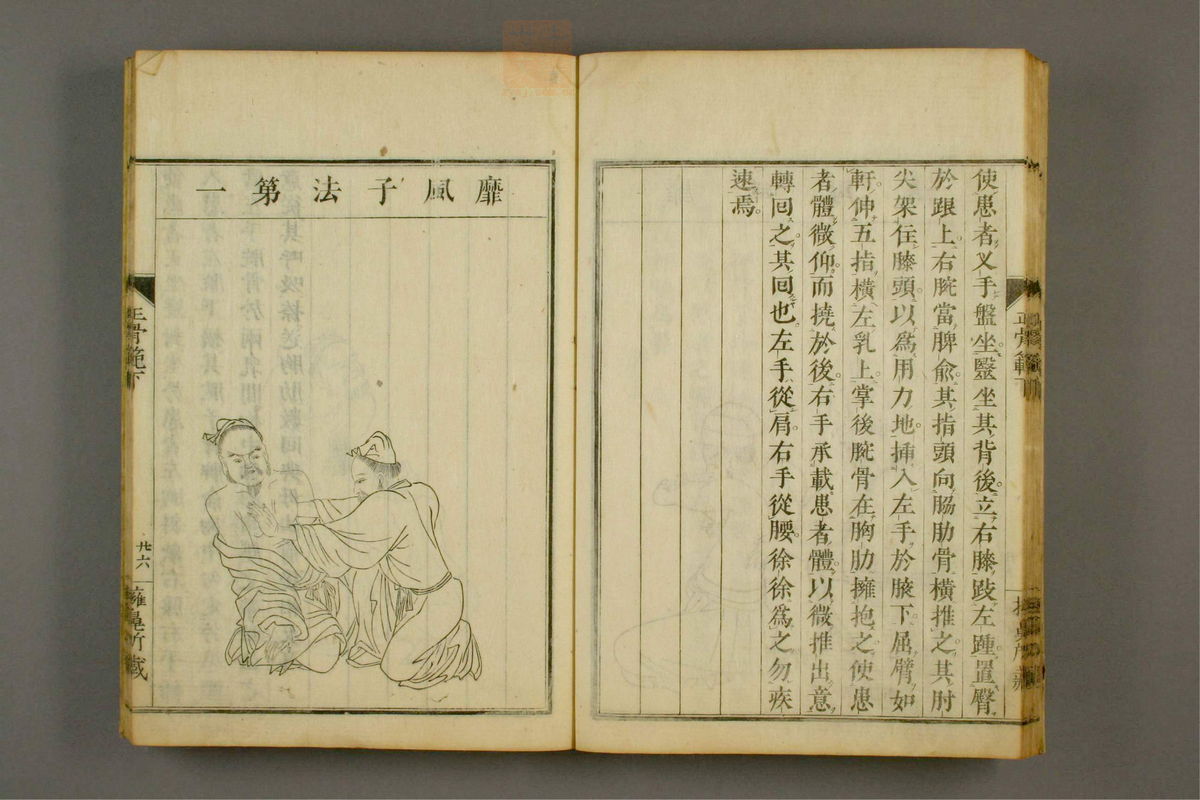 使患者叉手盤坐毉坐其背後立右膝跂左踵置臀
於跟上右腕當脾兪其指頭向脇肋骨橫推之其肘
尖架在膝頭以爲用力地揷入左手於腋下屈臂如
軒伸五指橫左乳上掌後腕骨在胸肋擁抱之使患
者體微仰而撓於後右手承載患者體以微推出意
轉回之其回也左手從肩右手從腰徐徐爲之勿疾
速焉
正骨範下
靡風子法第一
正骨範下
廿六
擁鼻所藏